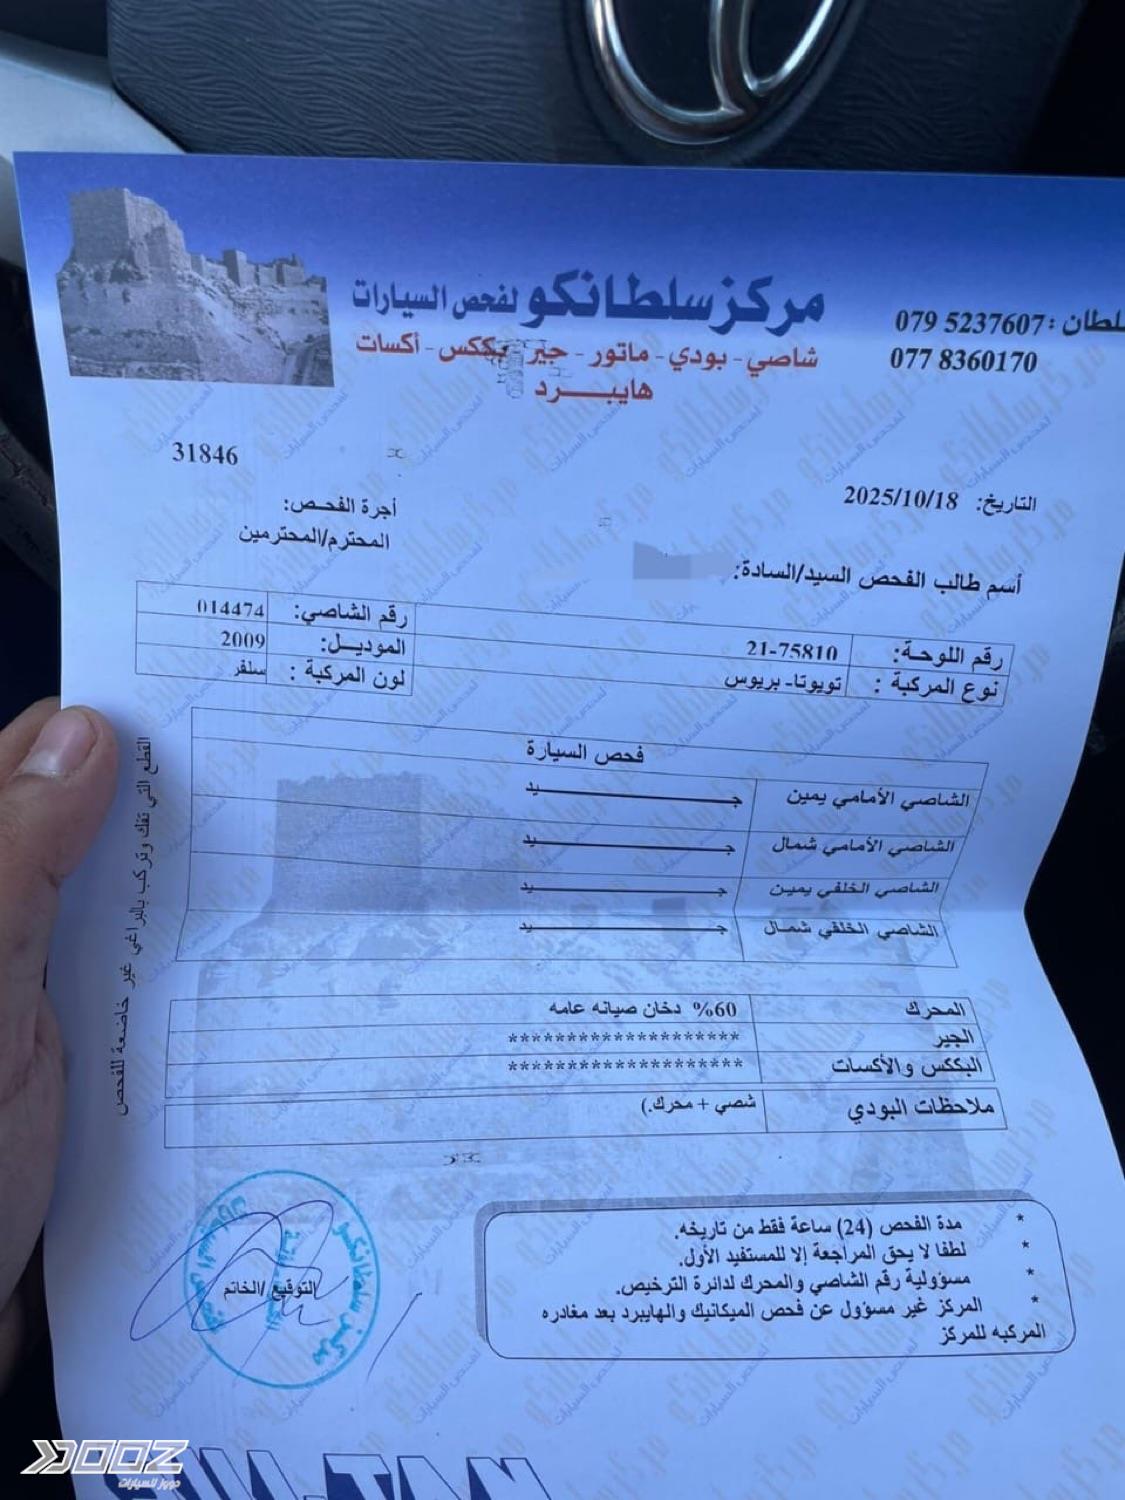 مركز سلطانكو لفحص السيارات
شاصي - بودي - ماتور - جير - بككس - أكسات
هايبـــرد
سلطان : 079 5237607
077 8360170
31846
التاريخ: 2025/10/18
أجرة الفحص:
المحترم/المحترمين
أسم طالب الفحص السيد/السادة:
رقم اللوحة: 21-75810 رقم الشاصي: 014474
نوع المركبة : تويوتا- بريوس الموديل: 2009
لون المركبة : سلفر
فحص السيارة
الشاصي الأمامي يمين جـــــــيد
الشاصي الأمامي شمال جـــــــيد
الشاصي الخلفي يمين جـــــــيد
الشاصي الخلفي شمال جـــــــيد
المحرك 60% دخان صيانه عامه
الجير ********************
البككس والأكسات ********************
ملاحظات البودي شصي + محرك.)
القطع التي تفك وتركب بالبراغي غير خاضعة للفحص
* مدة الفحص (24) ساعة فقط من تاريخه.
* لطفا لا يحق المراجعة إلا للمستفيد الأول.
* مسؤولية رقم الشاصي والمحرك لدائرة الترخيص.
* المركز غير مسؤول عن فحص الميكانيك والهايبرد بعد مغادره
المركبه للمركز
التوقيع /الخاتم
مركز سلطانكو
DOOZ
دووز للسيارات